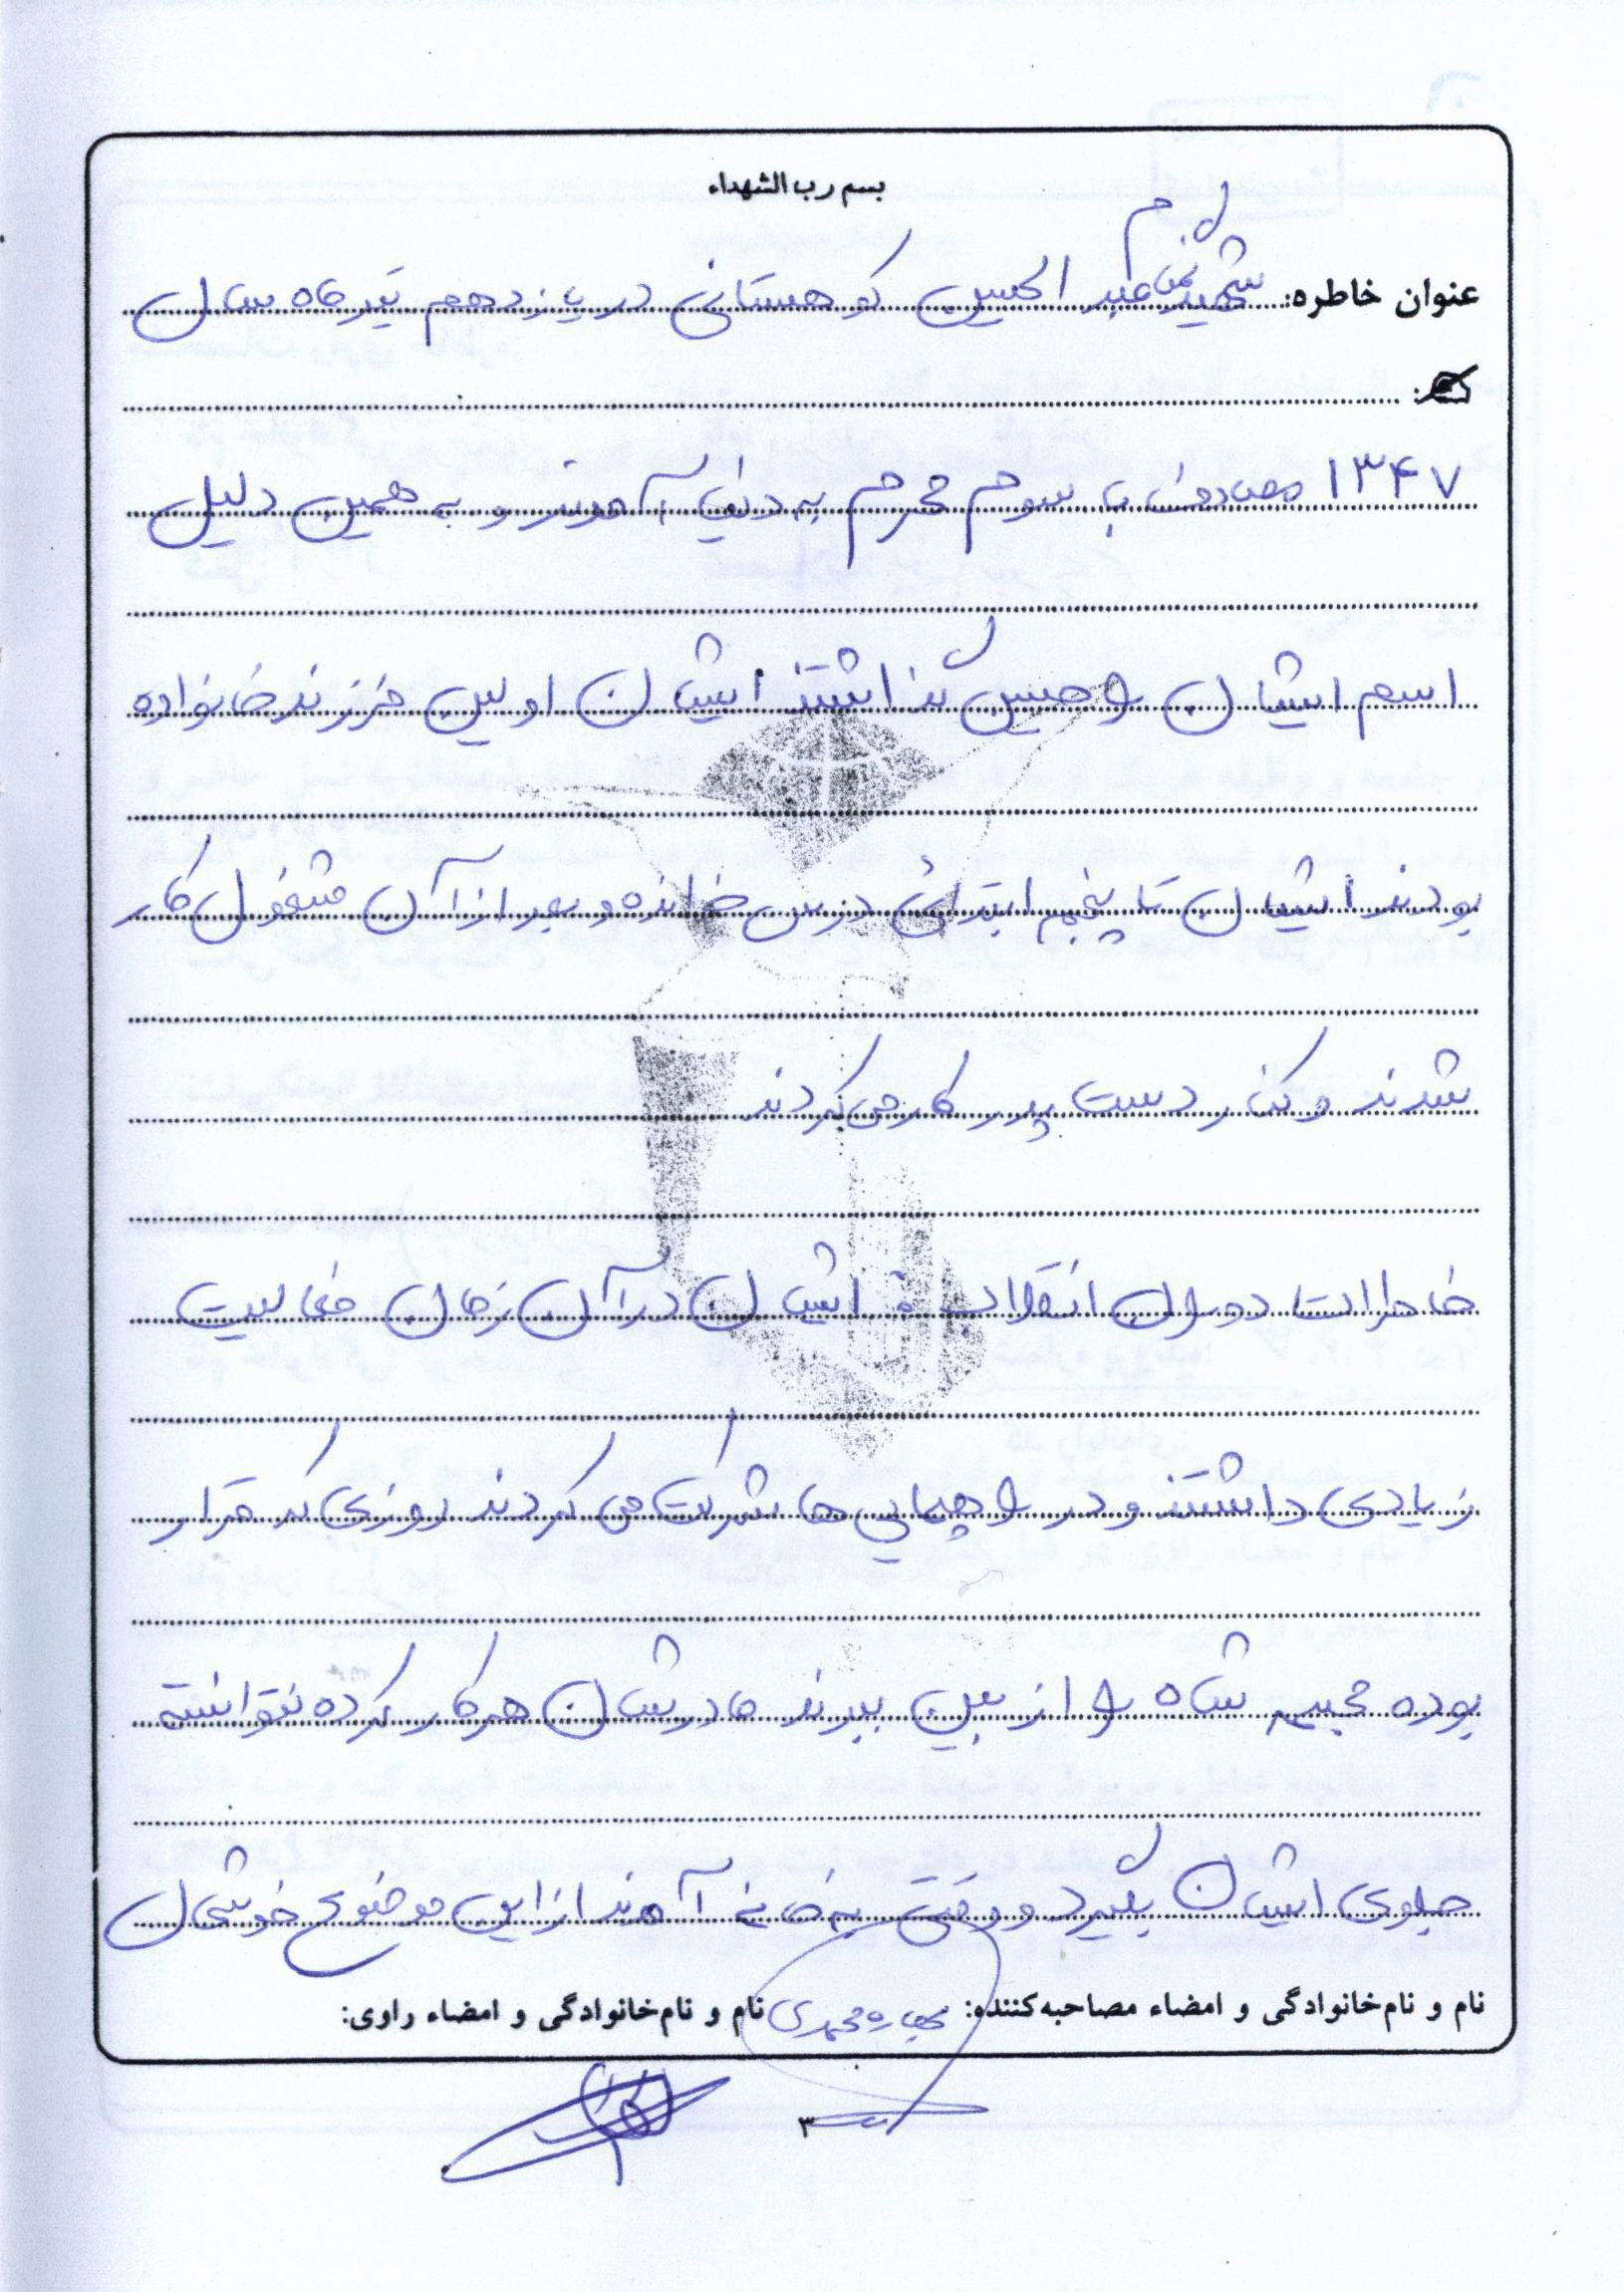 بسم رب الشهداء
عنوان خاطره: شهید عبدالحسین کوهستانی در یازدهم تیرماه سال
۱۳۴۷ مصادف با سوم محرم به دنیا آمدند و به همین دلیل
اسم ایشان را حسین گذاشتند ایشان اولین فرزند خانواده
بودند ایشان تا پنجم ابتدائی درس خوانده و بعد از آن مشغول کار
شدند و کنار دست پدر کار می‌کردند
خاطرات دوران انقلاب: ایشان در آن زمان فعالیت
زیادی داشتند و در راهپیمایی‌ها شرکت می‌کردند روزی که قرار
بوده مجسمه شاه را از بین ببرند مادرشان هرکار کرده نتوانسته
جلوی ایشان بگیرد و وقتی به خانه آمدند از این موضوع خوشحال
نام و نام‌خانوادگی و امضاء مصاحبه‌کننده: بهاره محمدی نام و نام‌خانوادگی و امضاء راوی:
۳